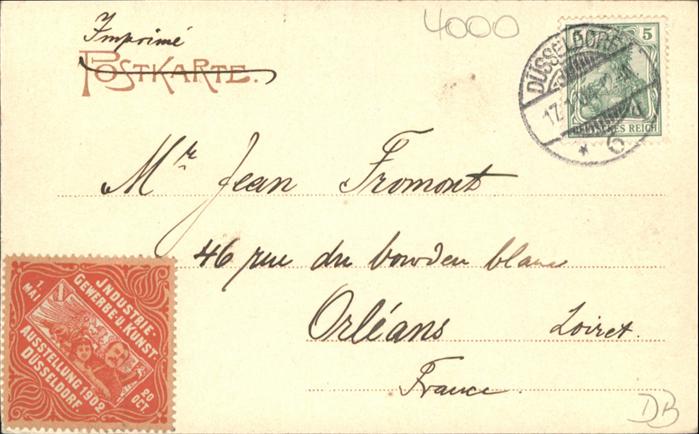 4000
Imprimé
POSTKARTE.
5 5
DEUTSCHES REICH
DÜSSELDORF
6
Mr Jean Fromont
46 rue du bourdon blanc
Orléans Loiret.
France.
INDUSTRIE-
GEWERBE U. KUNST
AUSSTELLUNG 1902
DÜSSELDORF.
1. MAI
20 OCT
DB